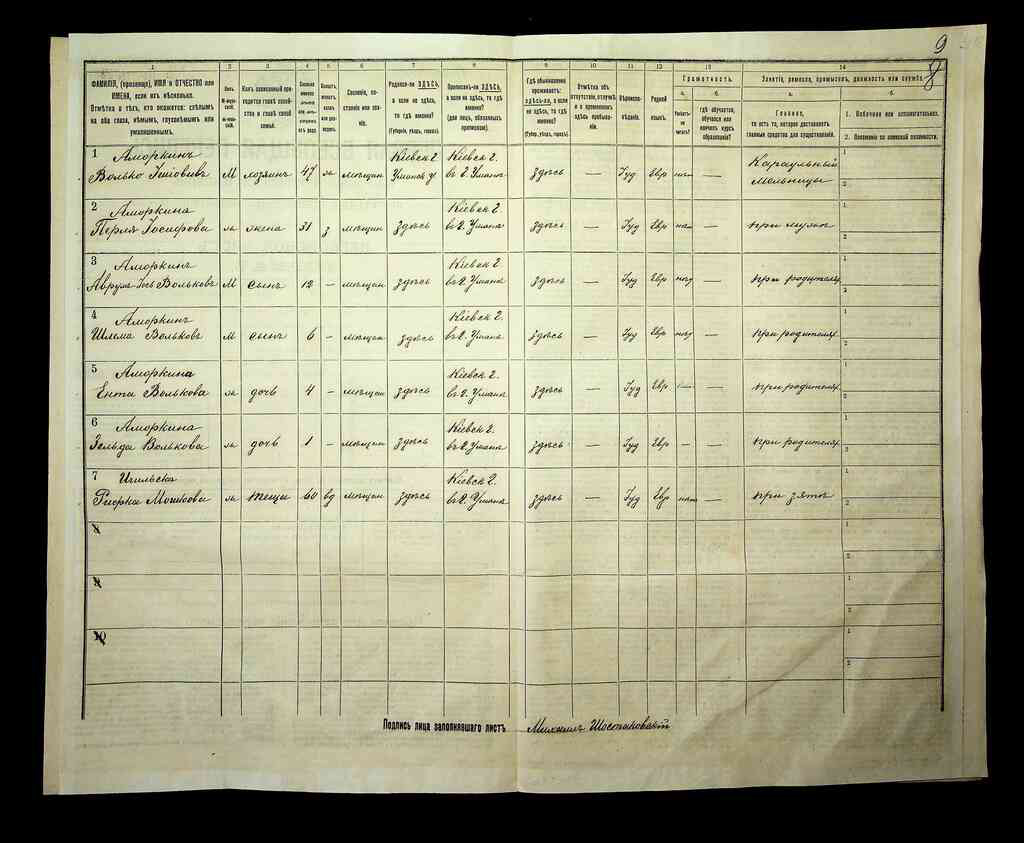 9
8
1 2 3 4 5 6 7 8 9 10 11 12 13 14
ФАМИЛІЯ, (прозвище), ИМЯ и ОТЧЕСТВО или ИМЕНА, если ихъ нѣсколько.
Отмѣтка о тѣхъ, кто окажется: слѣпымъ на оба глаза, нѣмымъ, глухонѣмымъ или умалишеннымъ.
Какъ записанный приходится главѣ хозяйства и главѣ своей семьи.
Сословіе, состояніе или званіе.
Родился-ли ЗДѢСЬ, а если не здѣсь, то гдѣ именно?
(Губернія, уѣздъ, городъ).
Приписанъ-ли ЗДѢСЬ, а если не здѣсь, то гдѣ именно?
(для лицъ, обязанныхъ припискою).
Гдѣ обыкновенно проживаетъ: здѣсь-ли, а если не здѣсь, то гдѣ именно?
(Губ., уѣздъ, городъ).
Отмѣтка объ отсутствіи, отлучкѣ и о временномъ здѣсь пребываніи.
Вѣроисповѣданіе.
Родной языкъ.
Грамотность.
а. Умѣетъ-ли читать?
б. Гдѣ обучается, обучался или кончилъ курсъ образованія?
Занятіе, ремесло, промыселъ, должность или служба.
а. Главное, то есть то, которое доставляетъ главныя средства для существованія.
б.
1. Побочное или вспомогательное.
2. Положеніе по воинской повинности.
1 Аморкинъ Кіевск г. Кіевск г. Караульный 1
Волько М хозяинъ 47 ж мѣщан Уманск у въ г. Умань здѣсь — Іуд Евр нѣт — мельницы 2
2 Аморкина Кіевск г. 1
Перля Іосифова ж жена 31 з мѣщан здѣсь въ г. Умань здѣсь — Іуд Евр — при мужѣ 2
3 Аморкинъ Кіевск г. 1
Вольковъ М сынъ 12 — мѣщан здѣсь въ г. Умань здѣсь — Іуд Евр — при родителях 2
4 Аморкинъ Кіевск г. 1
Шлема Вольковъ М сынъ 6 — мѣщан здѣсь въ г. Умань здѣсь — Іуд Евр — при родителях 2
5 Аморкина Кіевск г. 1
Ента Волькова ж дочь 4 — мѣщан здѣсь въ г. Умань здѣсь — Іуд Евр — — при родителях 2
6 Аморкина Кіевск г. 1
Зельда Волькова ж дочь 1 — мѣщан здѣсь въ г. Умань здѣсь — Іуд Евр — — при родителях 2
7 Кіевск г. 1
ж теща 60 вд мѣщан здѣсь въ г. Умань здѣсь — Іуд Евр — при зятѣ 2
8 1
2
9 1
2
10 1
2
Подпись лица заполнявшаго листъ Михаилъ Шостаковскій